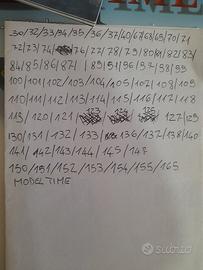 30/32/33/34/35/36/37/40/67/68/69/70/71
72/73/74/76/77/78/79/80/81/82/83/
84/85/86/87/ /89/91/96/97/98/99
100/101/102/103/104/105/107/108/109
110/111/112/113/114/115/116/117/118
119/120/121/123 124 125 127/129
130/131/132/133/136/137/138/140
141/142/143/144/145/147
150/151/152/153/154/155/165
MODEL TIME
subito